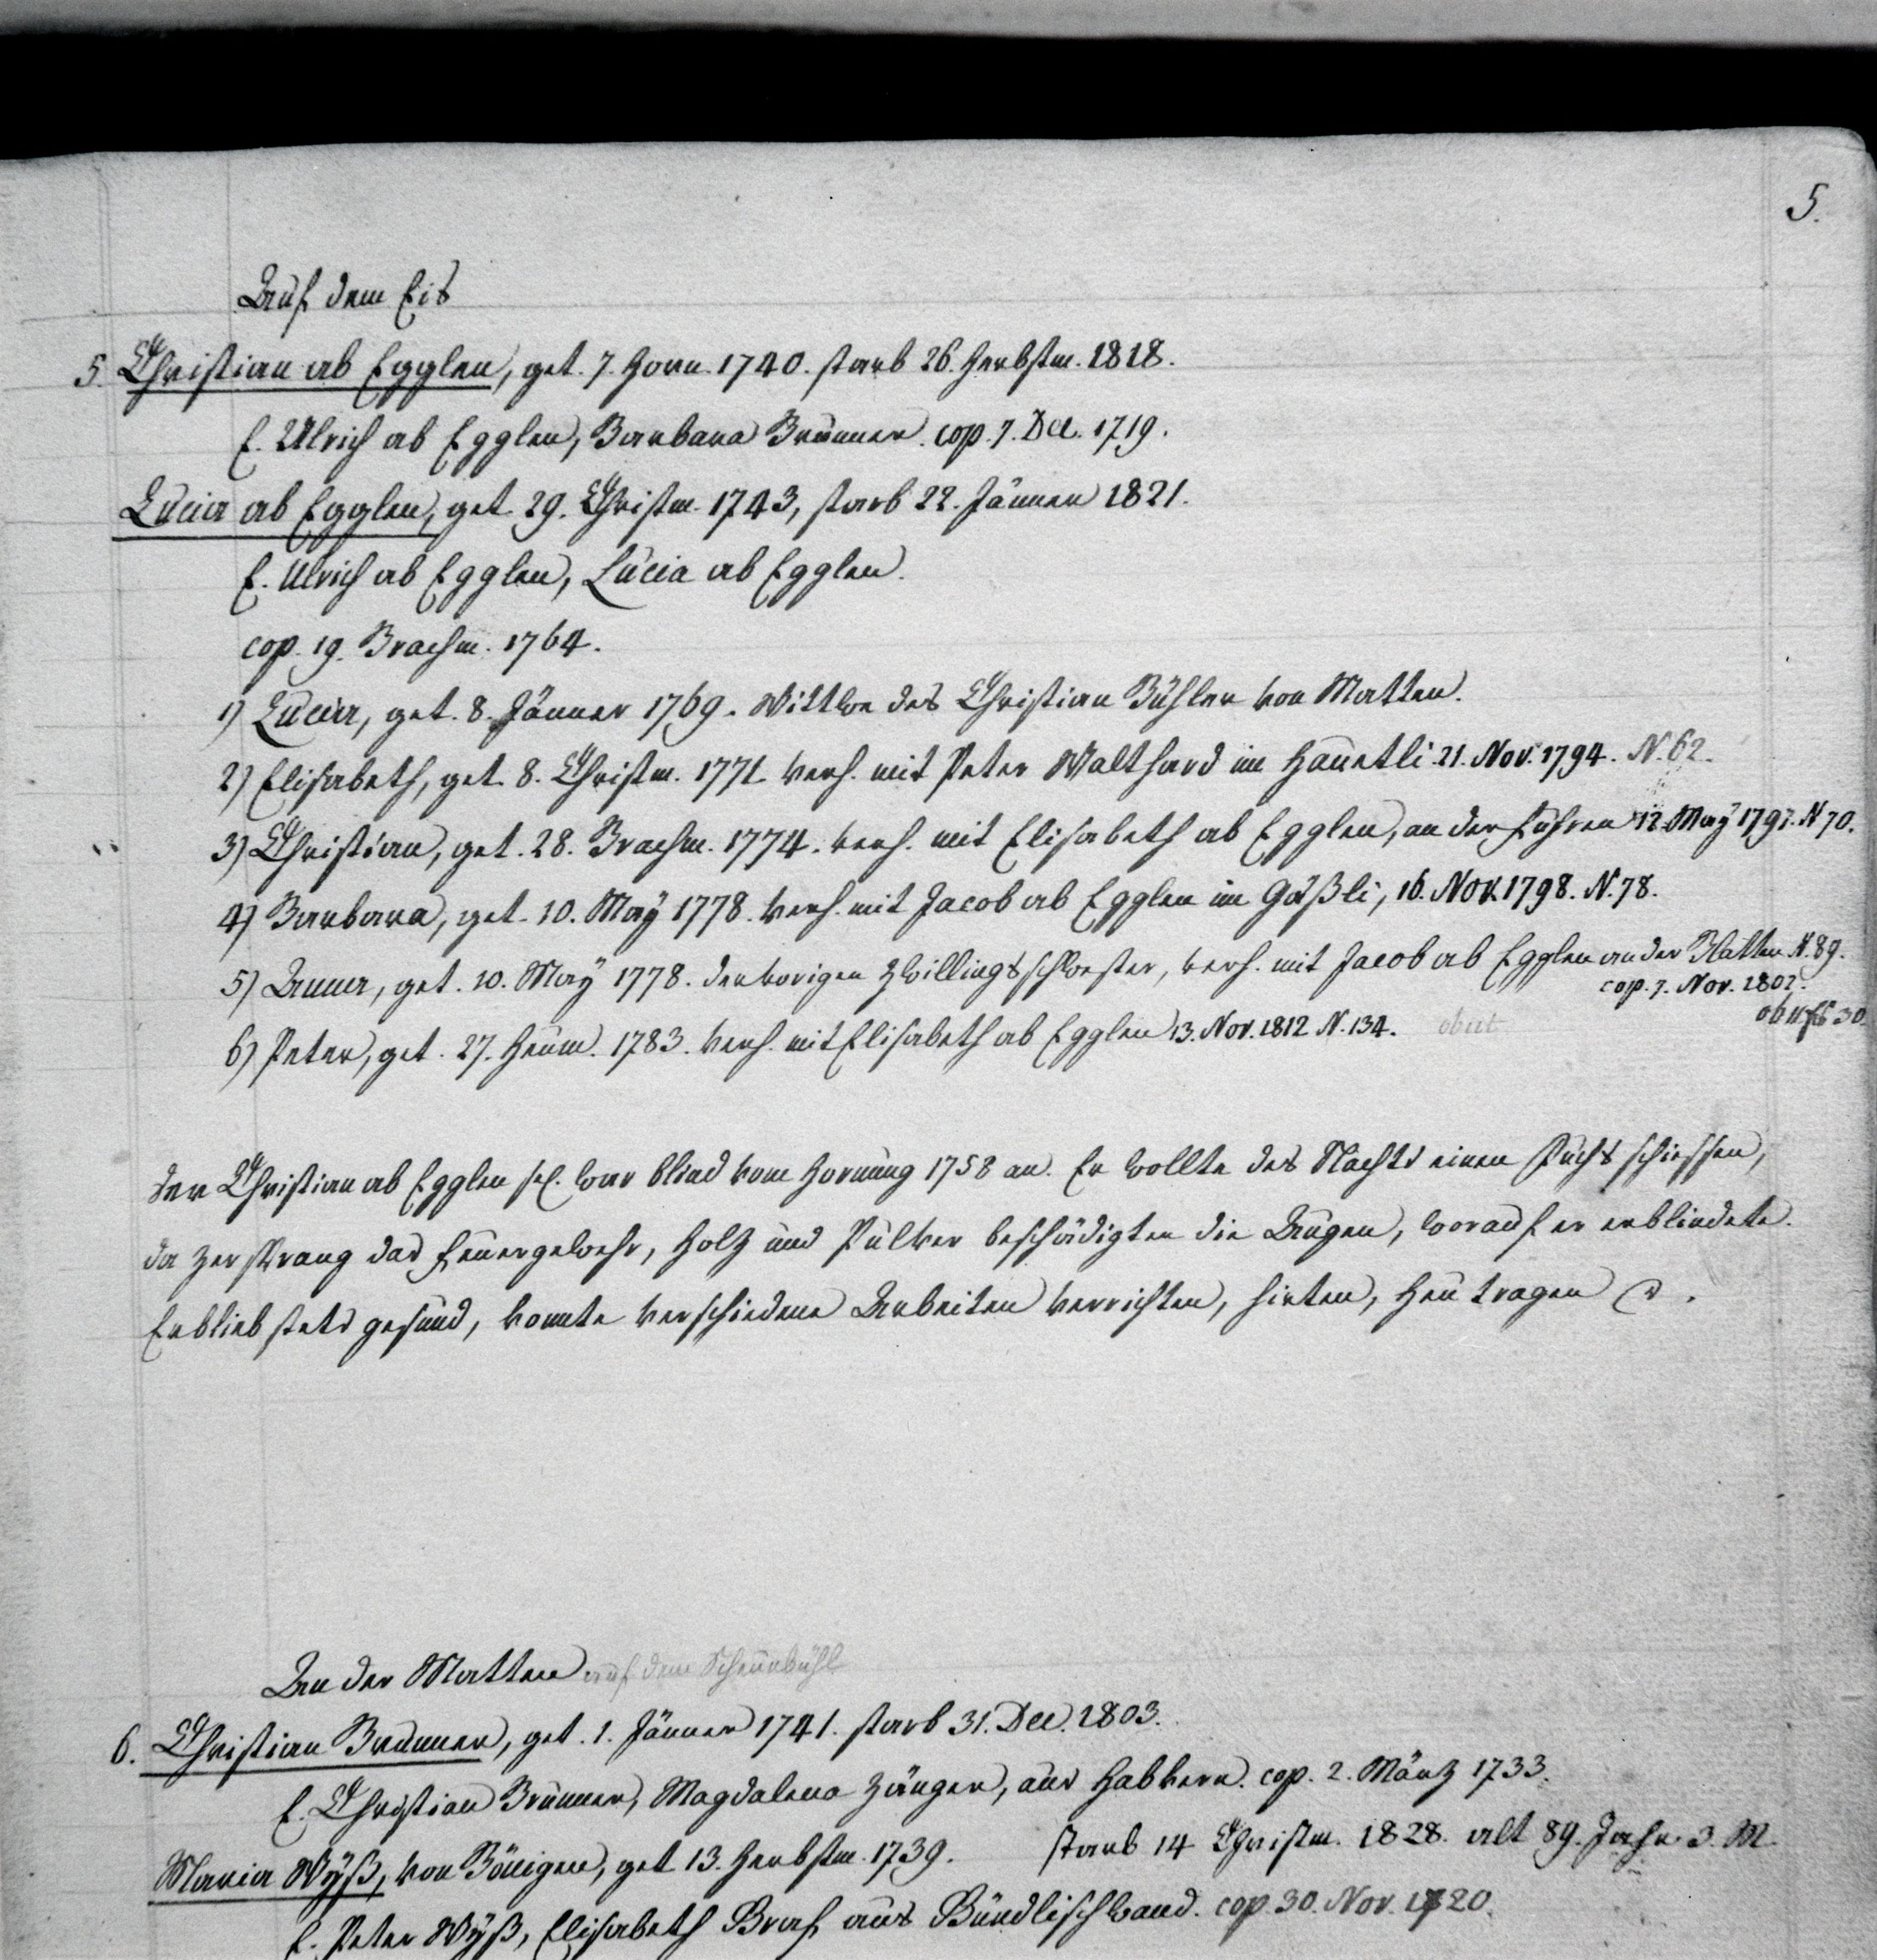 5.
Auf dem Eis
5. Christian ab Egglen, get. 7. Horn. 1740. starb 26. Herbstm. 1818.
E. Ulrich ab Egglen, Barbara Brunner. cop. 7. Dec. 1719.
Lucia ab Egglen, get. 29. Christm. 1743, starb 22. Jänner 1821.
E. Ulrich ab Egglen, Lucia ab Egglen.
cop. 19. Brachm. 1764.
1) Lucia, get. 8. Jänner 1769. Wittwe des Christian Bühler von Matten.
2) Elisabeth, get. 8. Christm. 1771 verh. mit Peter Walthard im Hauetli. 21. Nov. 1794. N. 62.
3) Christian, get. 28. Brachm. 1774. verh. mit Elisabeth ab Egglen, an der Fuhren 12. May 1797. N 70.
4) Barbara, get. 10. May 1778. verh. mit Jacob ab Egglen im Gäßli, 16. Nov. 1798. N. 78.
5) Anna, get. 10. May 1778. der vorigen Zwillingsschwester, verh. mit Jacob ab Egglen an der Matten N. 89.
cop. 7. Nov. 1802.
6) Peter, get. 27. Heum. 1783. verh. mit Elisabeth ab Egglen 13. Nov. 1812 N. 134. obiit
Der Christian ab Egglen sel. war blind vom Hornung 1758 an. Er wollte des Nachts einen Fuchs schiessen,
da zersprang das Feuergewehr, Holz und Pulver beschädigten die Augen, worauf er erblindete.
Er blieb stets gesund, konnte verschiedene Arbeiten verrichten, hirten, Heu tragen
An der Matten auf dem Scheurbühl
6. Christian Brunner, get. 1. Jänner 1741. starb 31. Dec. 1803.
E. Christian Brunner, Magdalena Zänger, aus Habkern. cop. 2. März 1733.
Maria Wyß, von Bönigen, get 13. Herbstm. 1739. starb 14 Christm. 1828. alt 89. Jahr. 3. M
E. Peter Wyß, Elisabeth Braf aus Gündlischwand. cop 30. Nov. 1720.